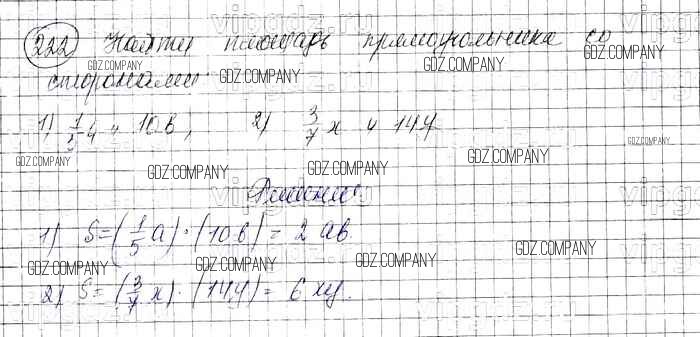 222 Найти площадь прямоугольника со
сторонами:
1) 1/5 a и 10b, 2) 3/7 x и 14y
Решение
1) S=(1/5 a)·(10b)=2ab.
2) S=(3/7 x)·(14y)=6xy.
GDZ.COMPANY
GDZ.COMPANY
GDZ.COMPANY
GDZ.COMPANY
GDZ.COMPANY
GDZ.COMPANY
GDZ.COMPANY
GDZ.COMPANY
GDZ.COMPANY
GDZ.COMPANY
GDZ.COMPANY
GDZ.COMPANY
GDZ.COMPANY
GDZ.COMPANY
vipgdz.ru